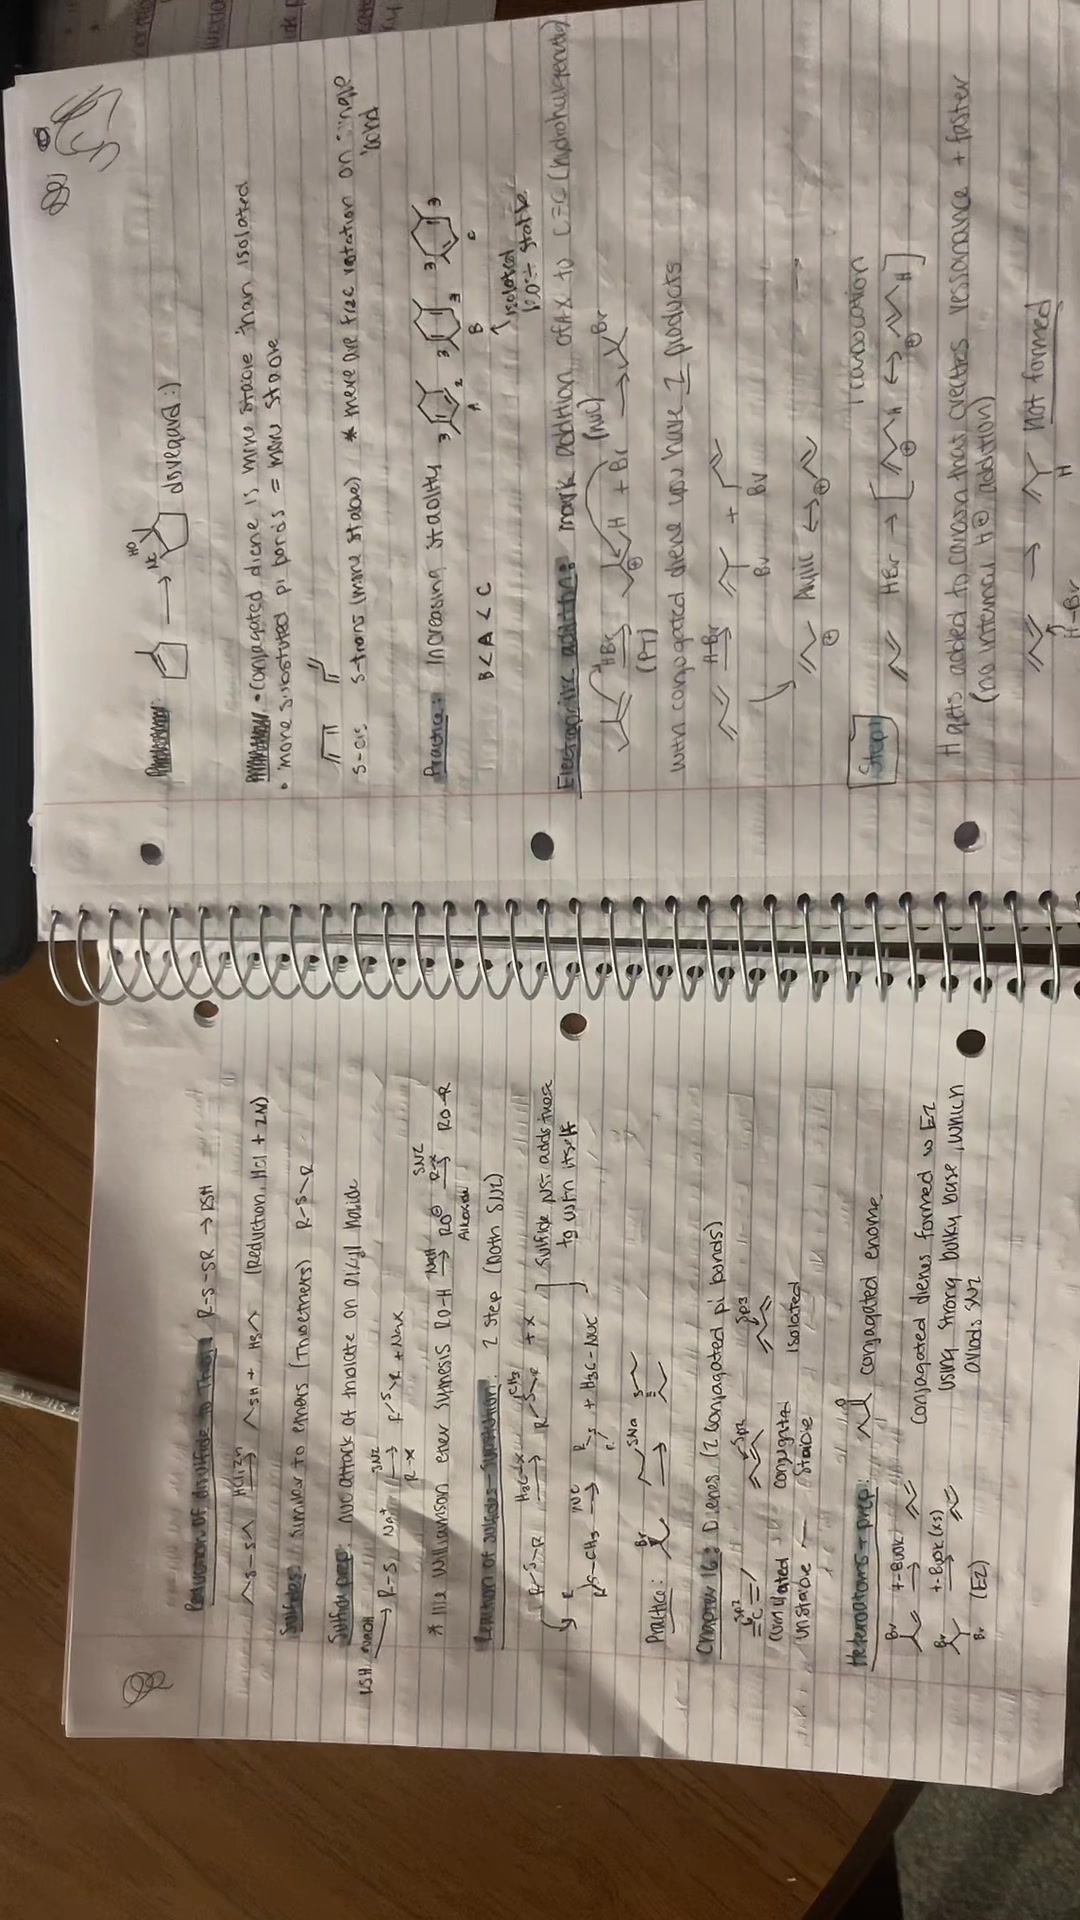 Reduction of disulfide to Thiol: R-S-SR → RSH
S-S HCl, Zn SH + HS (Reduction HCl + ZN)
Sulfides: similar to ethers (Thioethers) R-S-R
Sulfide prep: nuc attack of thiolate on alkyl halide
RSH NaOH → R-S Na+ SN2 → R-X R-S-R + NaX
* like Williamson ether synthesis RO-H NaH → RO⊖ SN2 R-X → RO-R
Alkoxide
Reaction of sulfides: 2 step (both SN2)
R-S-R H3C-X → R-S-R CH3 + X
R-S-CH3 NUC → R-S-R + H3C-NUC
Practice: Br SNa → S
Chapter 16: Dienes (2 conjugated pi bonds)
sp2 sp2 sp3
=C=
cumulated conjugated isolated
unstable stable
Heteroatoms + prep: O conjugated enone
Br t-BuOK → conjugated dienes formed w E2
Br t-BuOK (xs) → using strong bulky base, which
Br (E2) avoids SN2
→ NC HO :)
• Conjugated diene is more stable than isolated
• more substituted pi bonds = more stable
s-cis s-trans (more stable) * there are free rotation on single
bond
Practice: Increasing stability 3 2 3 3 3 3
A B C
B < A < C isolated
stable
Electrophilic addition: mark addition of HX to C=C (hydrohalogenation)
HBr → ⊕ H + Br (nuc) → Br
(PT)
with conjugated diene you have 2 products
H-Br → Br + Br
⊕ Allylic ↔ ⊕
Step 1 HBr → [ ⊕ H ↔ ⊕ H ]
H gets added to carbon that creates ressonance + faster
(no internal H⊕ addition)
→ H not formed
H-Br